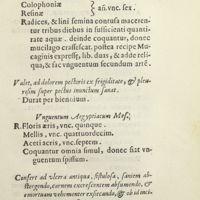 Colophoniæ
Resinæ } añ. vnc. sex.
Radices, & lini semina contusa macerentur
tribus diebus in sufficienti quantitate
aquæ. deinde coquantur, donec
mucilago crassescat. postea recipe Mucaginis
expressæ, lib. duas & adde reliqua,
& fac vnguentum secundum artē.
Valet, ad dolorem pectoris ex frigiditate, & pleuresim
super pectus inunctum sanat.
Durat per biennium.
Vnguentum Aegyptiacum Mes.
R. Floris æris, vnc. quinque.
Mellis, vnc. quattuordecim.
Aceti acris, vnc. septem.
Coquantur omnia simul, donec fiat vnguentum
spissum.
Confert ad vlcera antiqua, fistulosa, saniem abstergendo,
carnem excrescentem absumendo, &
amortuam vehementer exsiccando, & ab id